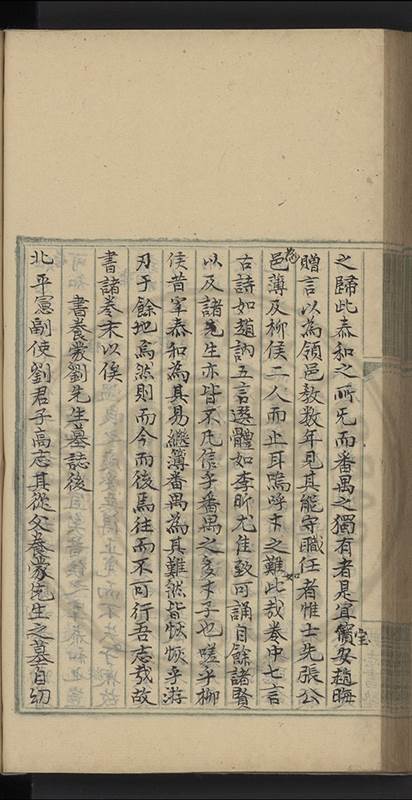 之歸此泰和之所旡而番禺之獨有者是宜寳安趙晦
贈言以為領邑敎数年見其能守職任者惟士先張公
邑薄及柳侯二人而止耳嗚呼才之難此哉卷中七言
古詩如趙訥五言選體如李昕尤佳致可誦自餘諸賢
以及諸先生亦皆不凡信乎番禺之多才子也嗟乎柳
侯昔宰泰和為其易繼簿番禺為其難然皆恢恢乎游
刃于餘地焉然則而今而後焉往而不可行吾志哉故
書諸卷末以俟
書養蒙劉先生墓誌後
北平憲副使劉君子高志其從父養蒙先生之墓自幼
宝
為
如